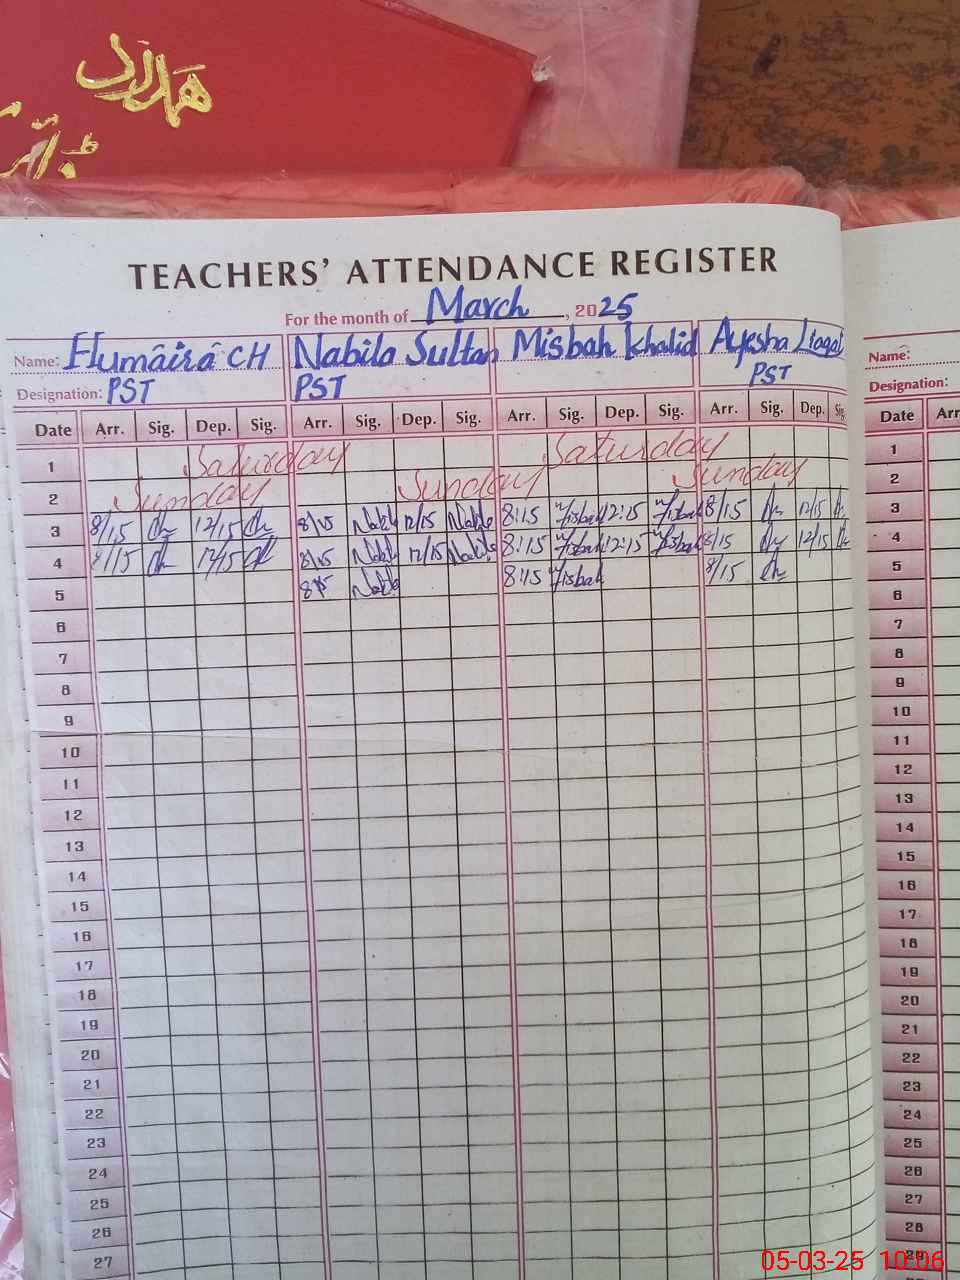 ھمدرد
TEACHERS' ATTENDANCE REGISTER
For the month of March, 2025
Name: Humaira CH Nabila Sultan Misbah Khalid Ayesha Liaqat Name:
Designation: PST PST PST Designation:
Date Arr. Sig. Dep. Sig. Arr. Sig. Dep. Sig. Arr. Sig. Dep. Sig. Arr. Sig. Dep. Sig. Date Arr
1 Saturday Saturday 1
2 Sunday Sunday Sunday 2
3 8/15 12/15 8/15 Nabila 12/15 Nabila 8:15 Misbah 12:15 Misbah 8/15 12/15 3
4 8/15 12/15 8/15 Nabila 12/15 Nabila 8:15 Misbah 12:15 Misbah 8/15 12/15 4
5 8/15 Nabila 8:15 Misbah 8/15 5
6 6
7 7
8 8
9 9
10 10
11 11
12 12
13 13
14 14
15 15
16 16
17 17
18 18
19 19
20 20
21 21
22 22
23 23
24 24
25 25
26 26
27 27
28
29
05-03-25 10:06